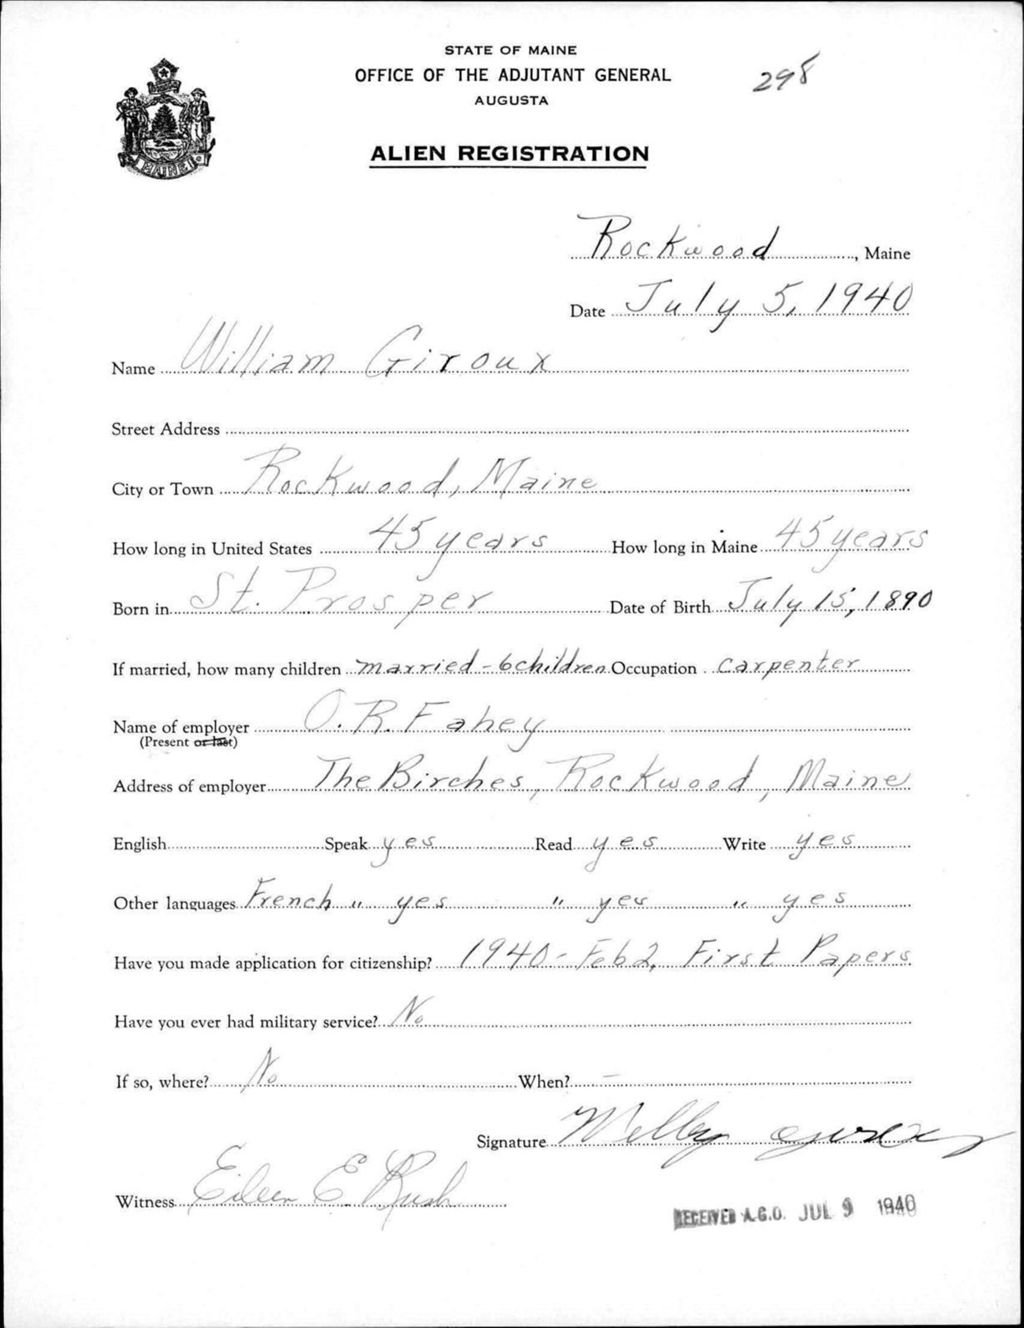 STATE OF MAINE
OFFICE OF THE ADJUTANT GENERAL
AUGUSTA
298
ALIEN REGISTRATION
MAINE
Rockwood, Maine
Date July 5, 1940
Name William Giroux
Street Address
City or Town Rockwood, Maine
How long in United States 45 years How long in Maine 45 years
Born in St. Prosper Date of Birth July 15, 1890
If married, how many children married - 6 children Occupation carpenter
Name of employer O. R. Fahey
(Present or last)
Address of employer The Birches, Rockwood, Maine
English Speak yes Read yes Write yes
Other languages French " yes " yes " yes
Have you made application for citizenship? 1940 - Feb 2, First Papers
Have you ever had military service? No
If so, where? No When? -
Signature Willey
Witness Eileen E Rush
RECEIVED A.G.O. JUL 9 1940